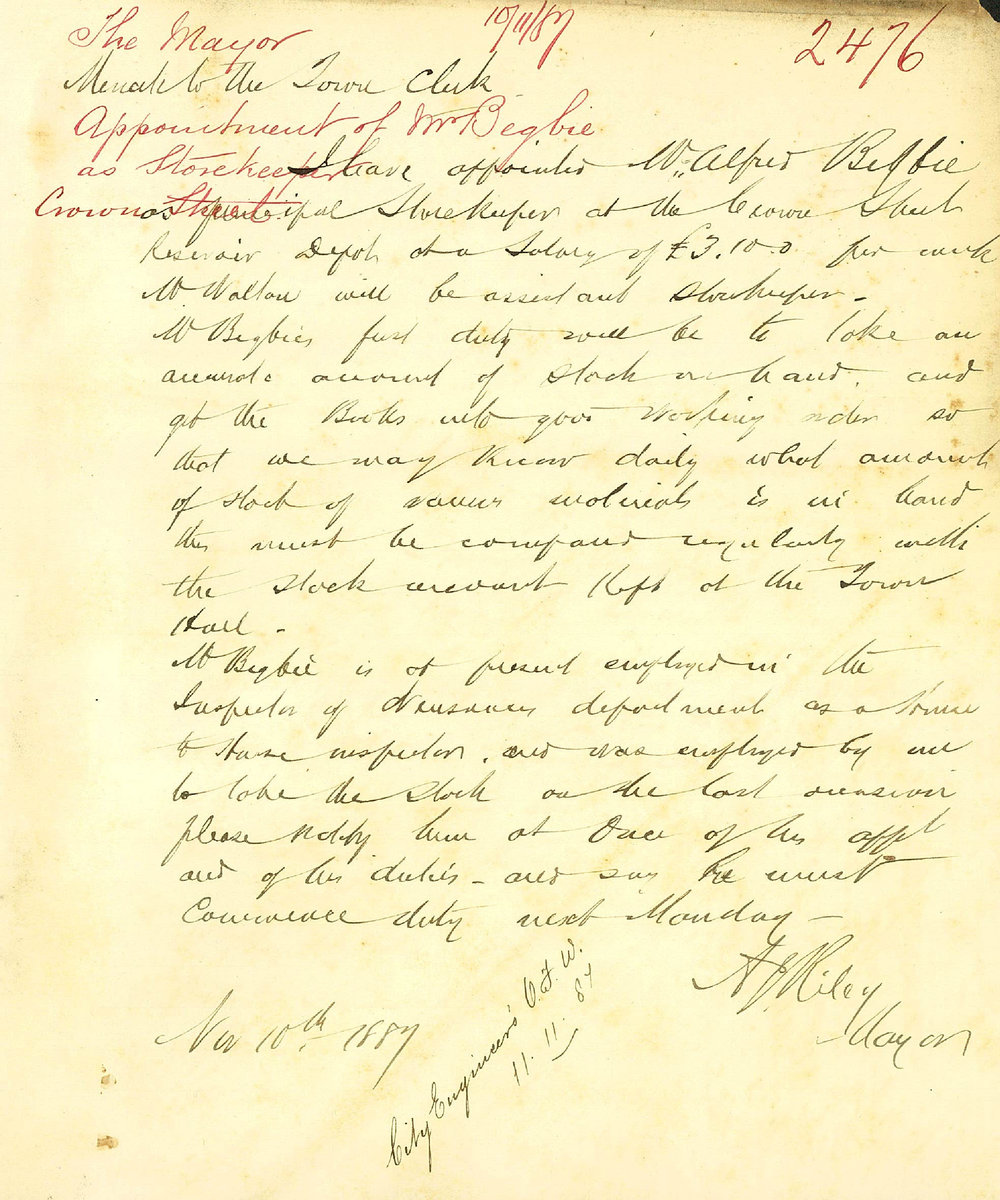 The Mayor
10/11/87
2476
Memo to the Town Clerk
Appointment of Mr Begbie
as Storekeeper
Crown Street
I have appointed Mr Alfred Begbie
as principal Storekeeper at the Crown Street
Reservoir Depot at a Salary of £3.10.0 per week
Mr Walton will be assistant storekeeper -
Mr Begbies first duty will be to take an
accurate account of stock on hand, and
get the Books into good working order so
that we may know daily what amount
of stock of various materials is in hand
this must be compared regularly with
the stock account kept at the Town
Hall -
Mr Begbie is at present employed in the
Inspector of Nuisances department as a House
to House inspector, and was employed by me
to take the stock on the last occasion
please notify him at Once of his appt
and of his duties - and say he must
Commence duty next Monday -
A J Riley
Mayor
Nov 10th 1887
City Engineer's O.F.W.
11.11.87